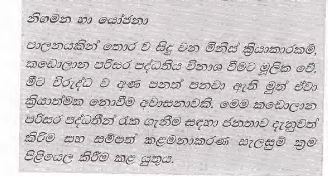 නිගමන හා යෝජනා
පාලනයකින් තොර ව සිදු වන මිනිස් ක්‍රියාකාරකම්,
කඩොලාන පරිසර පද්ධතිය විනාශ වීමට මූලික වේ.
මීට විරුද්ධ ව අණ පනත් පනවා ඇති මුත් ඒවා
ක්‍රියාත්මක නොවීම අවාසනාවකි. මෙම කඩොලාන
පරිසර පද්ධතීන් රැක ගැනීම සඳහා ජනතාව දැනුවත්
කිරීම සහ සම්පත් කළමනාකරණ සැලසුම් ක්‍රම
පිළියෙල කිරීම කළ යුතුය.